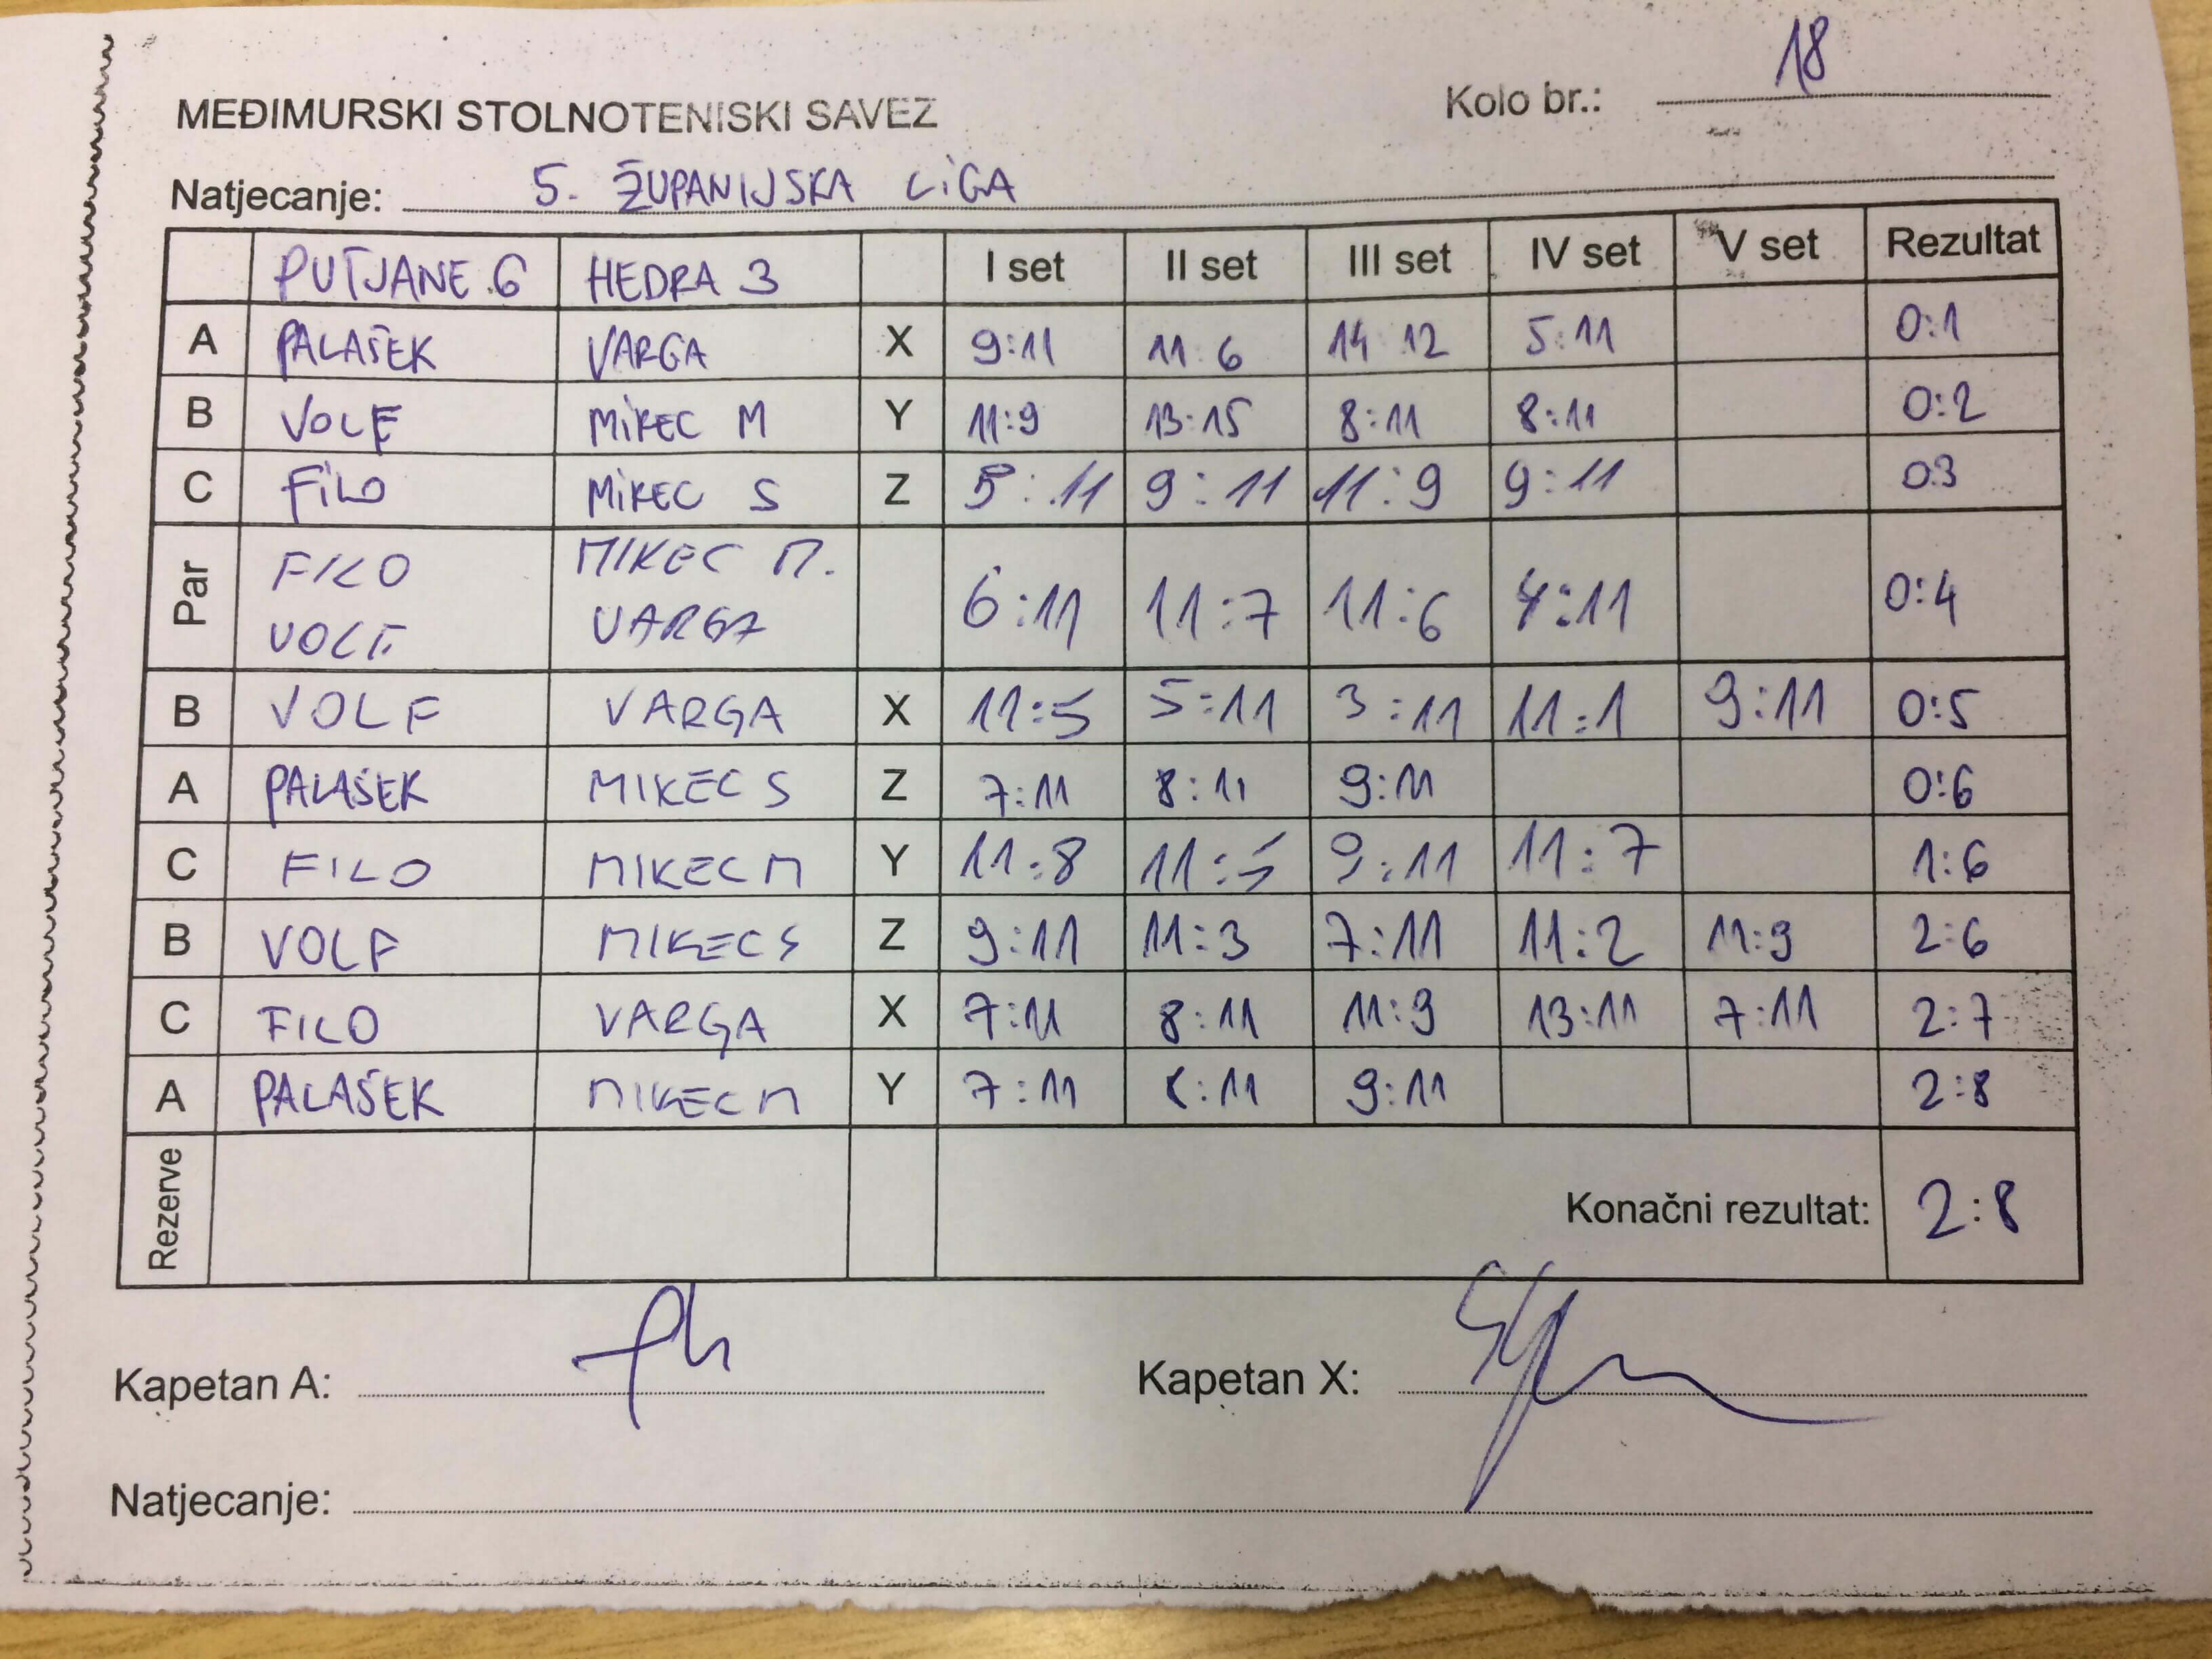 MEĐIMURSKI STOLNOTENISKI SAVEZ Kolo br.: 18
Natjecanje: 5. ŽUPANIJSKA LIGA
PUTJANE 6 HEDRA 3 I set II set III set IV set V set Rezultat
A PALAŠEK VARGA X 9:11 11:6 14 12 5:11 0:1
B VOLF MIKEC M Y 11:9 13:15 8:11 8:11 0:2
C FILO MIKEC S Z 5:11 9:11 11:9 9:11 03
Par FILO MIKEC M. 6:11 11:7 11:6 4:11 0:4
VOLF VARGA
B VOLF VARGA X 11:5 5:11 3:11 11:1 9:11 0:5
A PALAŠEK MIKEC S Z 7:11 8:11 9:11 0:6
C FILO MIKEC M Y 11:8 11:5 9:11 11:7 1:6
B VOLF MIKEC S Z 9:11 11:3 7:11 11:2 11:9 2:6
C FILO VARGA X 7:11 8:11 11:9 13:11 7:11 2:7
A PALAŠEK MIKEC M Y 7:11 8:11 9:11 2:8
Rezerve Konačni rezultat: 2:8
Kapetan A: Kapetan X:
Natjecanje: